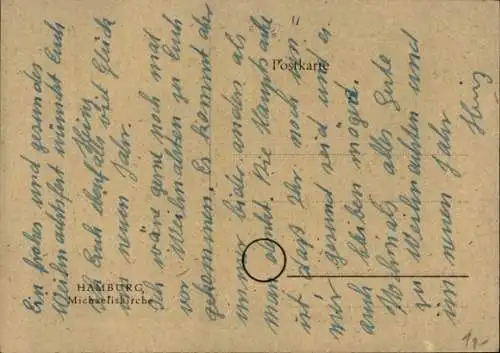 Ein frohes und gesundes
Weihnachtsfest wünscht Euch
Heinz
und Euch ebenfalls viel Glück
im neuen Jahr.
Ich wäre gerne noch mal
vor Weihnachten zu Euch
gekommen. Es kommt aber
immer wieder anders als
man denkt. Die Hauptsache
ist daß Ihr noch in
gesund seid und es
auch bleiben möget.
Nochmals alles Gute
zu Weihnachten und
im neuen Jahr
Heinz
Postkarte
HAMBURG,
Michaeliskirche